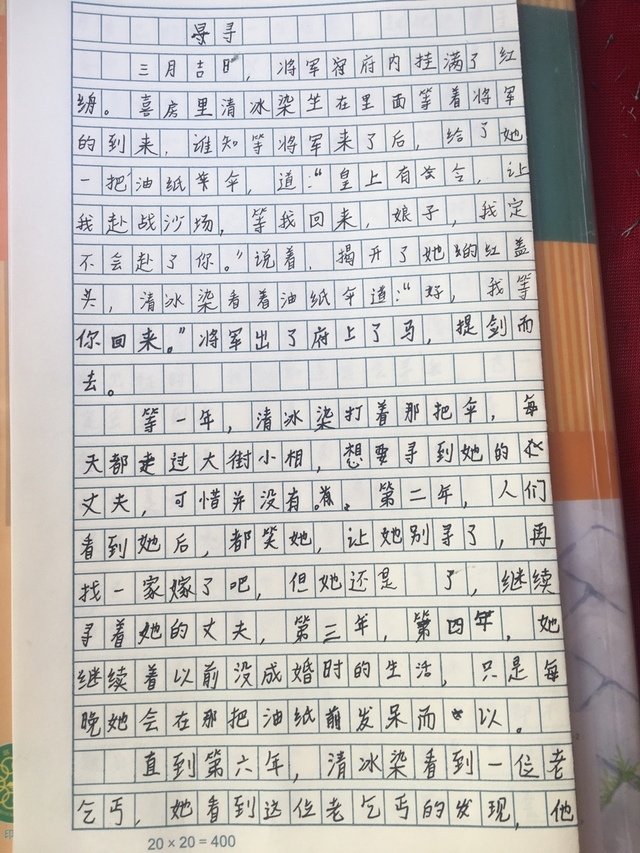 寻寻
三月吉日，将军府府内挂满了红
绸。喜房里清冰染坐在里面等着将军
的到来，谁知等将军来了后，给了她
一把油纸伞，道：“皇上有令，让
我赴战沙场，等我回来，娘子，我定
不会赴了你。”说着，揭开了她的红盖
头，清冰染看着油纸伞道：“好，我等
你回来。”将军出了府上了马，提剑而
去。
等一年，清冰染打着那把伞，每
天都走过大街小相，想要寻到她的
丈夫，可惜并没有。第二年，人们
看到她后，都笑她，让她别寻了，再
找一家嫁了吧，但她还是了，继续
寻着她的丈夫，第三年，第四年，她
继续着以前没成婚时的生活，只是每
晚她会在那把油纸前发呆而以。
直到第六年，清冰染看到一位老
乞丐，她看到这位老乞丐的发现，他
20×20=400